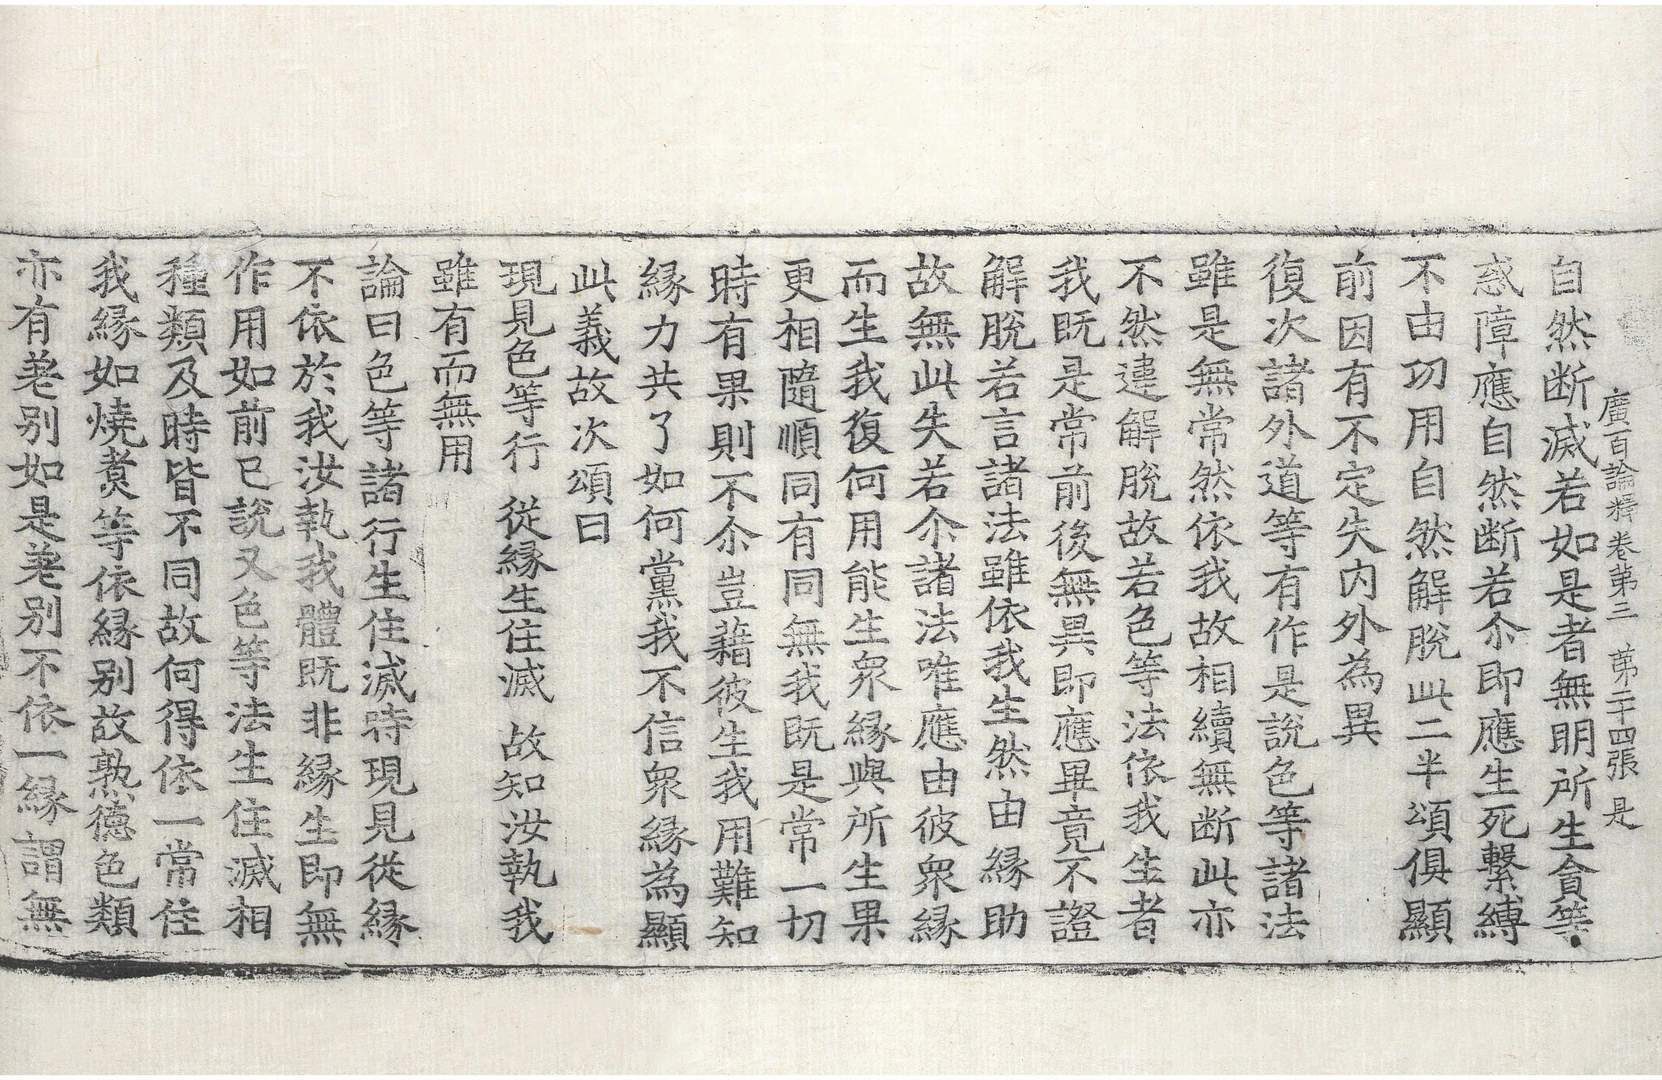 廣百論釋卷第三　第二十四張　是
自然断滅若如是者無明所生貪等
惑障應自然断若尒即應生死繫縛
不由功用自然解脫此二半頌俱顯
前因有不定失内外為異
復次諸外道等有作是說色等諸法
雖是無常然依我故相續無断此亦
不然違解脫故若色等法依我生者
我既是常前後無異即應畢竟不證
解脫若言諸法雖依我生然由緣助
故無此失若尒諸法唯應由彼衆緣
而生我復何用能生衆緣與所生果
更相隨順同有同無我既是常一切
時有果則不尒豈藉彼生我用難知
緣力共了如何黨我不信衆緣為顯
此義故次頌曰
現見色等行　從緣生住滅　故知汝執我
雖有而無用
論曰色等諸行生住滅時現見從緣
不依於我汝執我體既非緣生即無
作用如前已說又色等法生住滅相
種類及時皆不同故何得依一常住
我緣如燒煑等依緣別故熟德色類
亦有差別如是差別不依一緣謂無